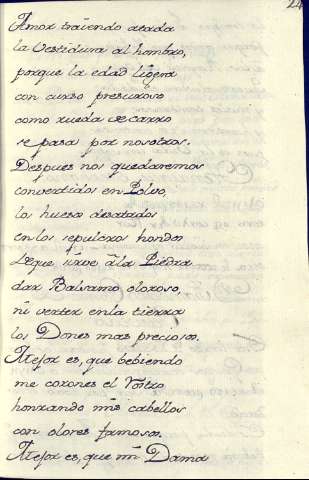 24
Amor traiendo atada
la Vestidura al hombro,
porque la edad ligera
con curso presuroso
como rueda de carro
se pasa por nosotros.
Despues nos quedaremos
convertidos en Polvo,
los huesos desatados
en los sepulcros hondos
De que sirve à la Piedra
dar Balsamo oloroso,
ni verter en la tierra
los Dones mas preciosos.
Mejor es, que bebiendo
me corones el Rostro
honrando mis cabellos
con olores famosos.
Mejor es, que mi Dama